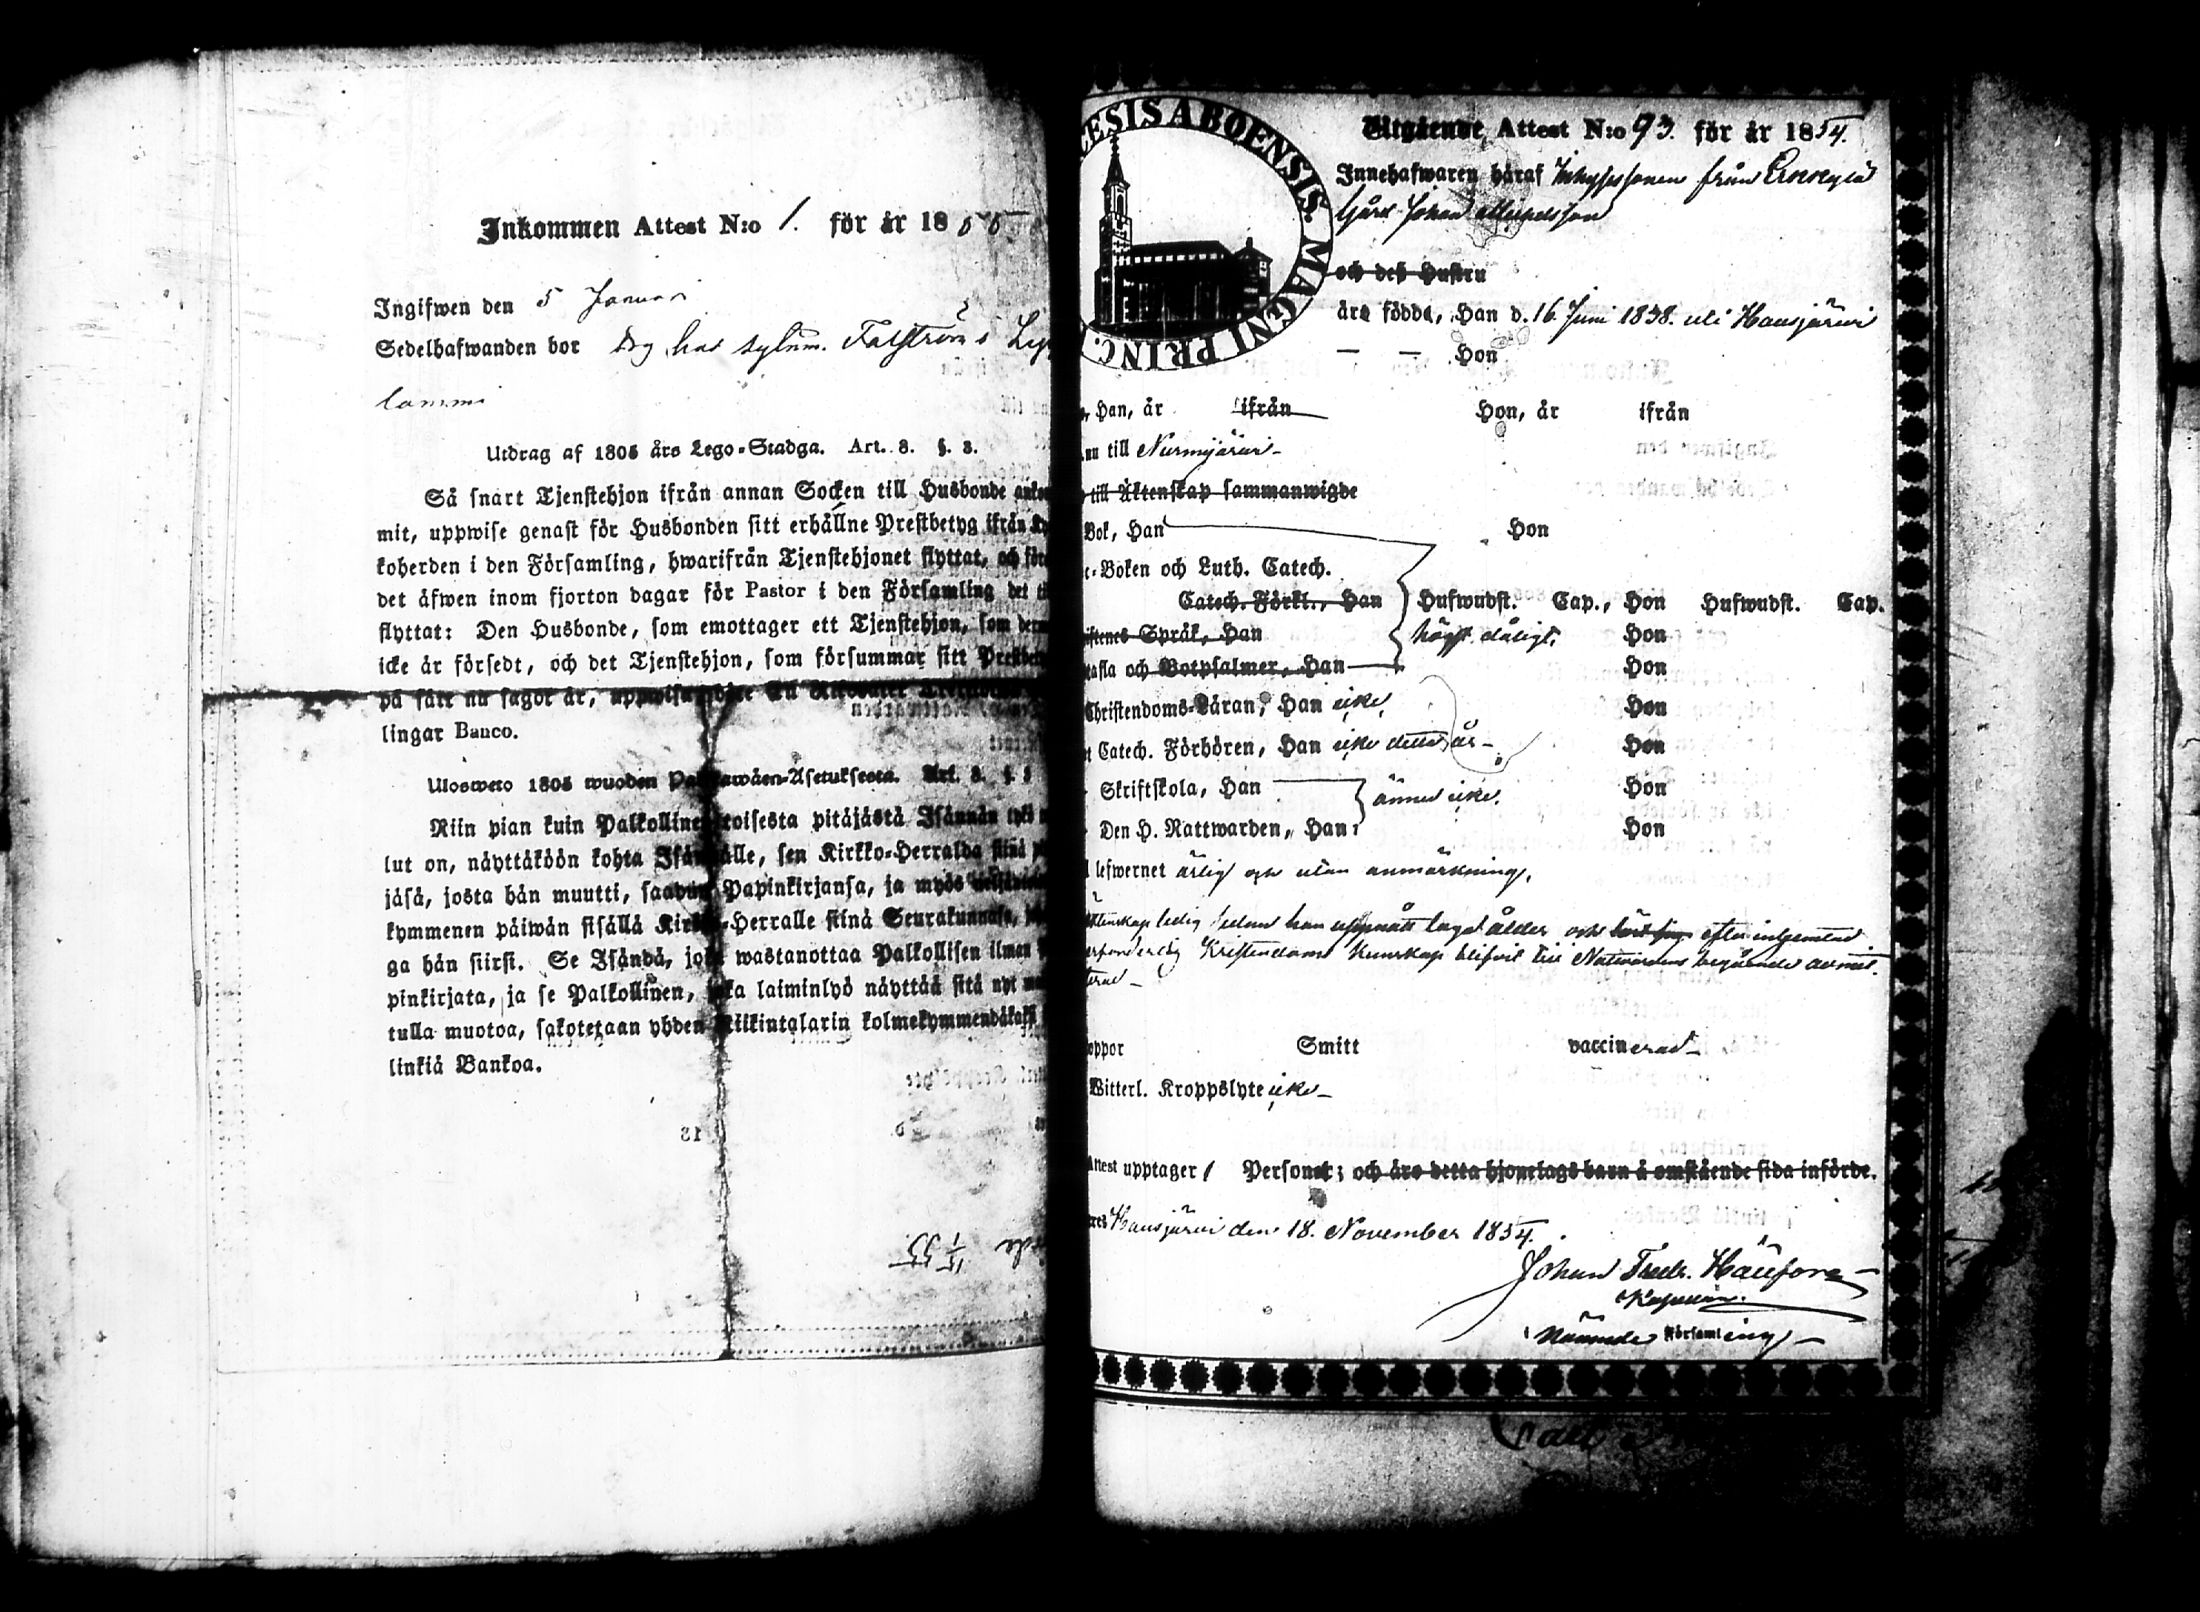 Inkommen Attest N:o 1. för år 1855
Ingifwen den 5 Januari
Sedelhafwanden bor hos
lammi
Utdrag af 1805 års Lego-Stadga. Art. 8. §. 3.
Så snart Tjenstehjon ifrån annan Socken till Husbonde
mit, uppwise genast för Husbonden sitt erhållne Prestbetyg ifrån
koherden i den Församling, hwarifrån Tjenstehjonet flyttat, och
det äfwen inom fjorton dagar för Pastor i den Församling det
flyttat: Den Husbonde, som emottager ett Tjenstehjon, som
icke är försedt, och det Tjenstehjon, som försummar sitt
på sätt nu sagdt är,
lingar Banco.
Ulosweto 1805 wuoden Art. 8. §. 3
Niin pian kuin Palkollinen toisesta pitäjästä Isännän tykö
lut on, näyttäköön kohta Isännälle, sen Kirkko-Herralda siinä
jäsä, josta hän muutti, saadun Papinkirjansa, ja myös
kymmenen päiwän sisällä Kirkko-Herralle siinä Seurakunnasa,
ga hän siirsi. Se Isändä, joka wastanottaa Palkollisen ilman
pinkirjata, ja se Palkollinen, joka laiminlyö näyttää sitä nyt
tulla muotoa, sakotetaan yhden Riikintalarin kolmekymmendäkaksi
linkiä Bankoa.
15/1 55.
CESIS ABOENSIS. MAGNI PRINC.
Utgående Attest N:o 93. för år 1854.
Innehafwaren häraf från
gård Johan
och deß Hustru
äro födde, Han d. 16. Juni 1838. uti Hausjärwi
— — Hon
Han, år ifrån Hon, år ifrån
nu till Nurmijärwi
till Äktenskap sammanwigde
Bok, Han Hon
Boken och Luth. Catech.
Catech. Förkl., Han Hufwudst. Cap., Hon Hufwudst. Cap.
Språk, Han högst dåligt. Hon
tafla och Botpsalmer, Han Hon
Christendoms-Läran, Han icke Hon
Catech. Förhören, Han icke detta år Hon
Skriftskola, Han Hon
ännu icke.
Den H. Nattwarden, Han Hon
lefwernet ärlig och utan anmärkning.
ledig sedan han uppnått lagd ålder och efter inhemtad
Kristendoms kunskap blifvit till Nattvardens begående admit
terad
koppor Smitt vaccinerad
Witterl. Kroppslyte icke
Attest upptager 1 Person; och äro detta hjonelags barn å omstående sida införde.
Hausjärwi den 18. November 1854.
Johan Fredr.
i Nämnde Församling